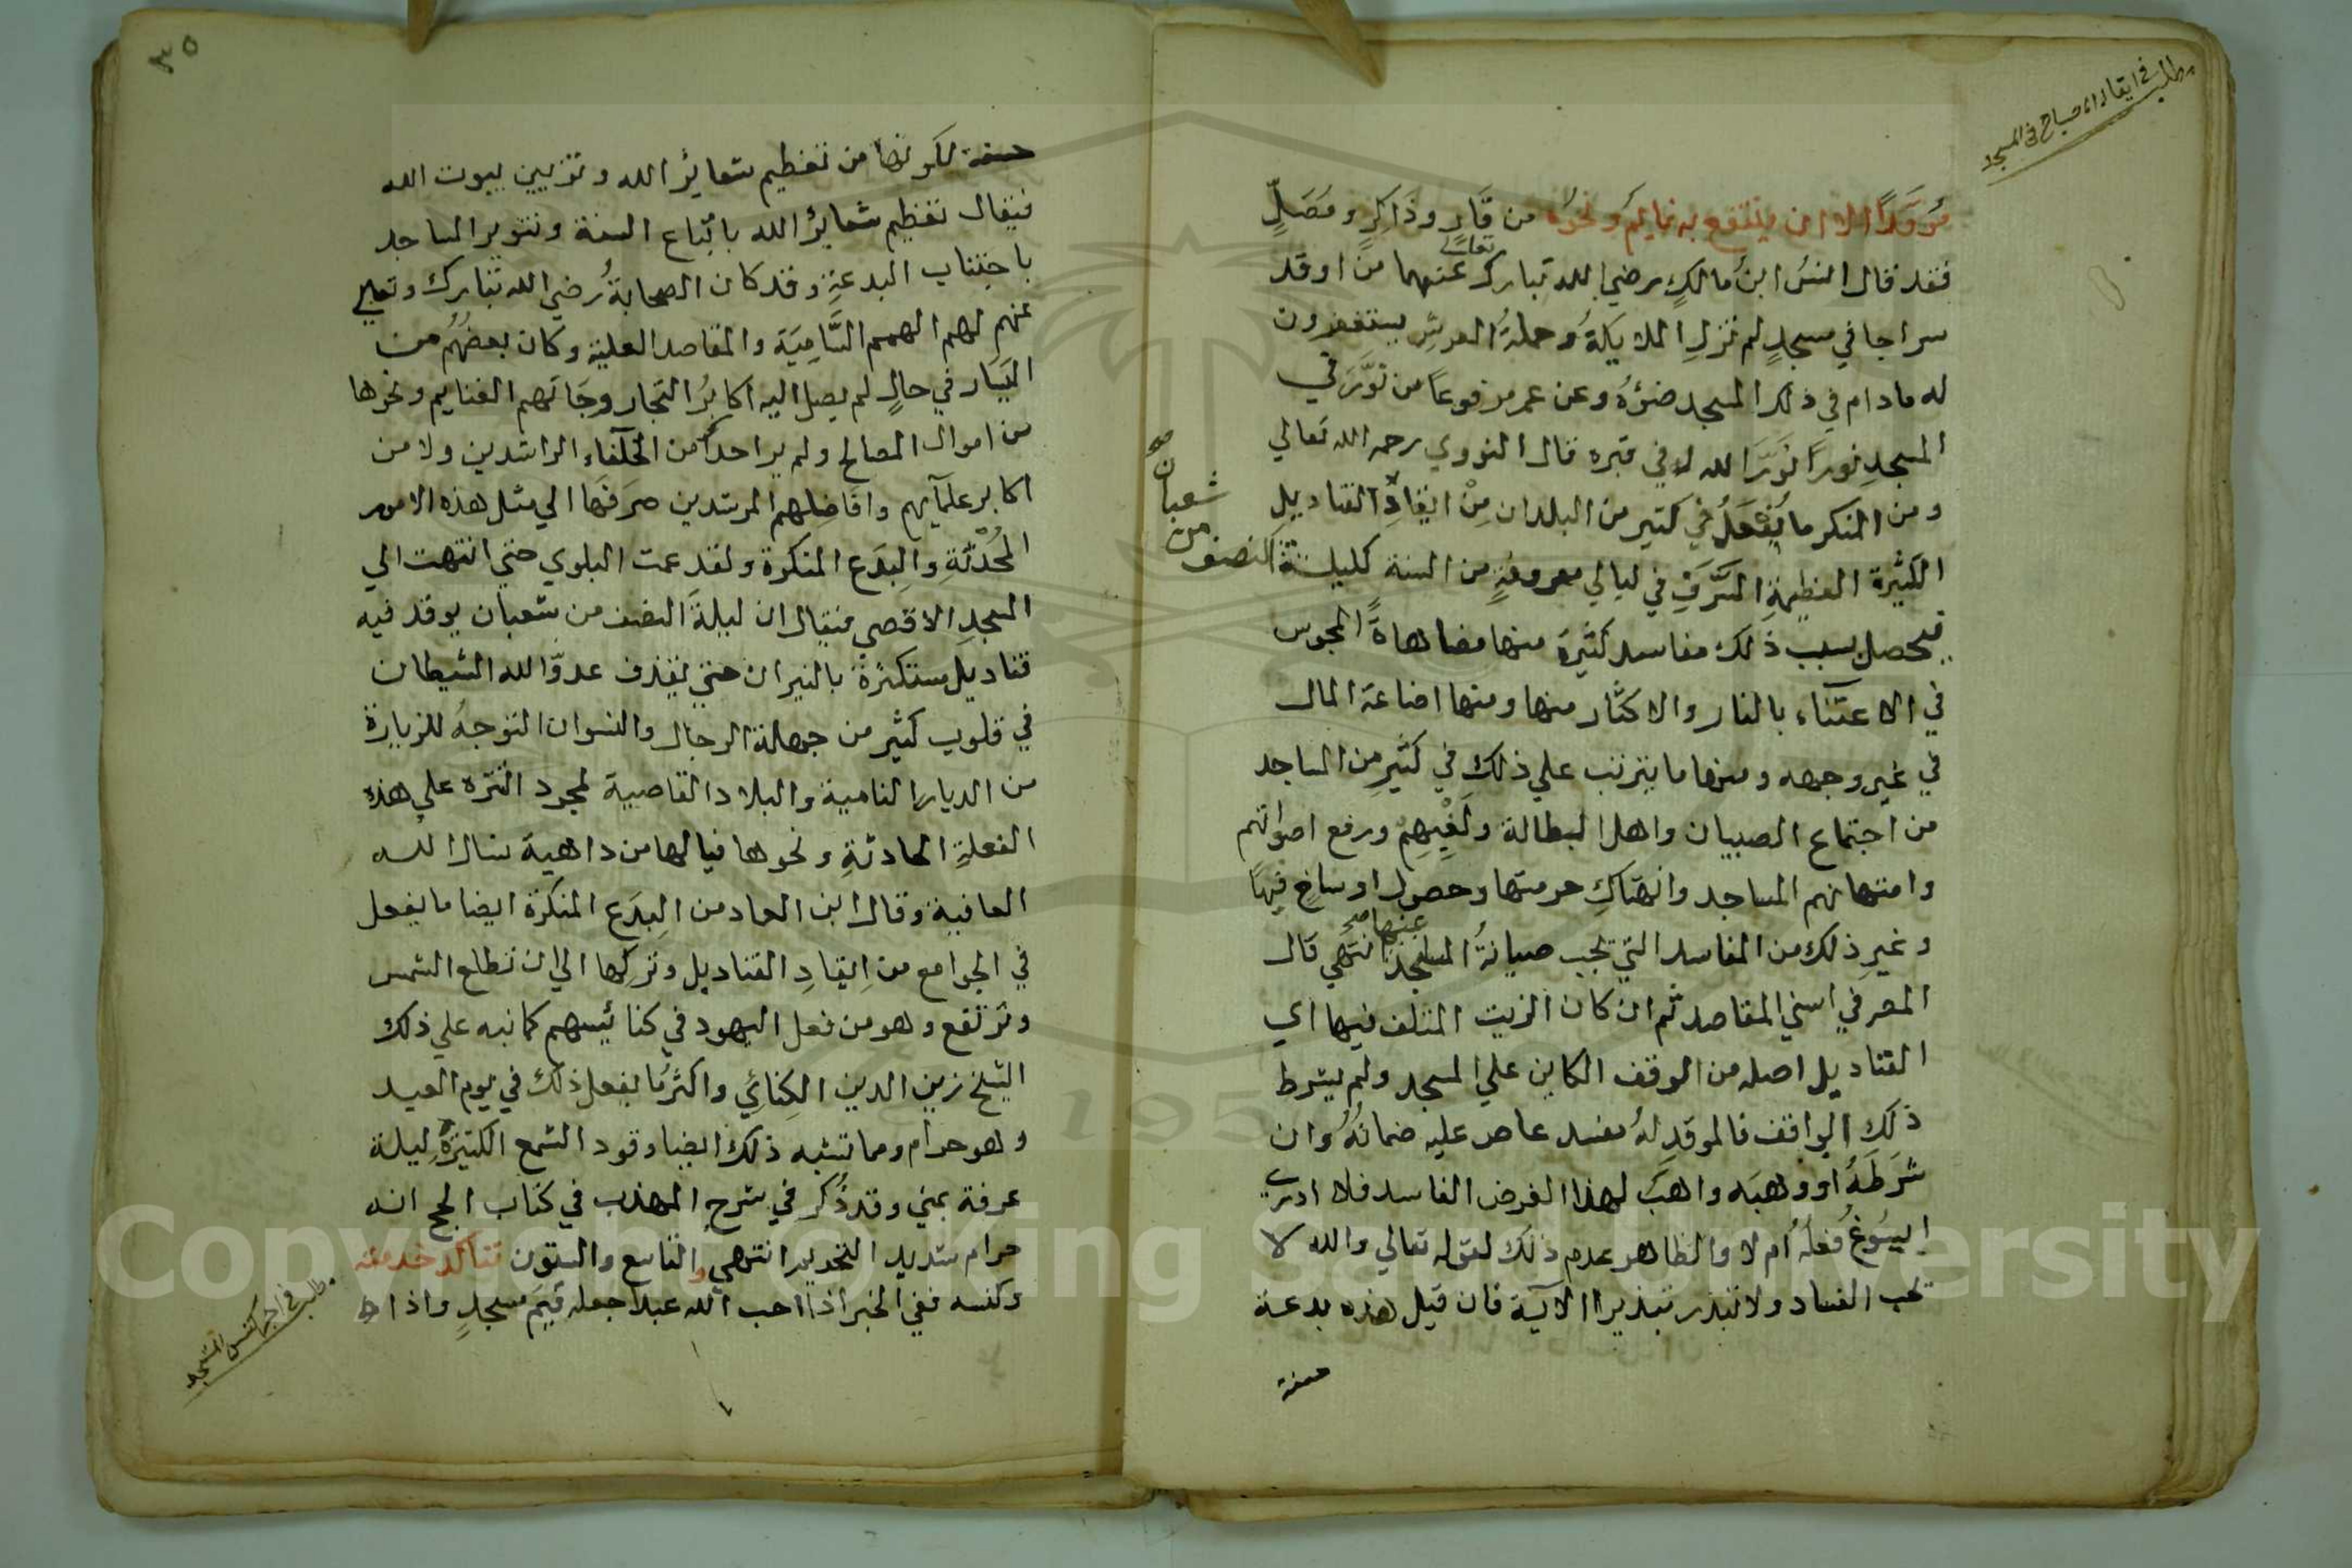 مطلب في ايقاد المصباح في المسجد
مُوقَدًا الا ان ينتفع به نايمٌ ونحوُه من قَارٍ وذَاكِرٍ ومُصَلٍّ
فقد قال انسُ ابنُ مالكٍ رضي الله تبارك تعالى عنهما من اوقد
سراجا في مسجدٍ لم تزلِ الملايكةُ وحملةُ العرشِ يستغفرون
له مادام في ذلك المسجد ضوؤُه وعن عمر مرفوعاً من نَوَّرَ في
المسجدِ نوراً نَوَّرَ الله له في قبره قال النووي رحمه الله تعالي
ومن المنكر ما يُفْعَلُ في كثير من البلدان مِنْ ايقادِ القناديلِ
الكثيرة العظيمةِ السَّرَفِ في ليالي معروفةٍ من السنة كليلة النصف
من شعبان صح
فيحصل بسبب ذلك مفاسد كثيرة منها مضاهاةُ المجوس
في الاعتناء بالنار والاكثار منها ومنها اضاعة المال
في غير وجهه ومنها ما يترتب علي ذلك في كثيرٍ من المساجد
من اجتماع الصبيان واهل البطالة ولَغْيِهِمْ ورفع اصواتهم
وامتهانهم المساجد وانتهاكِ حرمتها وحصول اوساخٍ فيها
وغيرِ ذلك من المفاسد التي تجب صيانةُ المسجد عنها صح انتهي قال
المص في اسني المقاصد ثم ان كان الزيت المتلف فيها اي
القناديل اصله من الوقف الكاين علي المسجد ولم يشرط
ذلك الواقف فالموقد لهُ مفسد عاص عليه ضمانُهُ وان
شَرَطَهُ او وهبَه واهبٌ لهذا الغرض الفاسد فلا ادري
ايسُوغُ فعلُهُ أم لا والظاهر عدم ذلك لقوله تعالي والله لا
يحب الفساد ولا تبذر تبذيرا الآية فان قيل هذه بدعة
حسنة
٣٥
حسنة لكونها من تعظيم شعائر الله وتزيين بيوت الله
فيقال تعظيم شعائر الله باتباع السنة وتنوير المساجد
باجتناب البدعةِ وقد كان الصحابةُ رضي الله تبارك وتعالي
عنهم لهم الهمم السَّامِيَة والمقاصد العلية وكان بعضُهُم من
اليَسَار في حالٍ لم يصل اليه اكابرُ التجار وجَاتَهم الغنايم ونحوها
من اموال المصالح ولم ير احدٌ من الخلفاء الراشدين ولا من
اكابر علمآيهم وافَاضِلهم المرشدين صرَفَهَا الي مثل هذه الامور
المُحْدَثَةِ والبِدَع المنكرة ولقد عمت البلوي حتي انتهت الي
المسجدِ الاقصي فيقال ان ليلةَ النصف من شعبان يوقد فيه
قناديل مستكثرة بالنيران حتي يقذف عدوّ الله الشيطان
في قلوب كثير من جهلة الرجال والنسوان التوجهُ للزيارة
من الديار النامية والبلاد القاصية لمجرد التنزه علي هذه
الفعلةِ الحادثةِ ونحوها فيا لها من داهية نسال الله
العافية وقال ابن العماد من البِدَع المنكرة ايضا ما يفعل
في الجوامع من اِيقادِ القناديل وتركها الي ان تطلع الشمس
وترتفع وهو من فعل اليهود في كنائسهم كما نبه علي ذلك
الشيخ زين الدين الكِنائي واكثرُ ما يفعل ذلك في يوم العيد
وهو حرام ومما تشبه ذلك ايضا وقود الشمع الكثيرةِ ليلة
عرفة بمني وقد ذُكر في شرح المهذب في كتاب الحج انه
حرام شديد التحرير انتهي والتاسع والستون تتاكد خدمته
وكنسه ففي الخبر اذا احب الله عبدا جعله قيمَ مسجدٍ واذا
مطلب في اجر كنس المسجد
Copyright © King Saud University